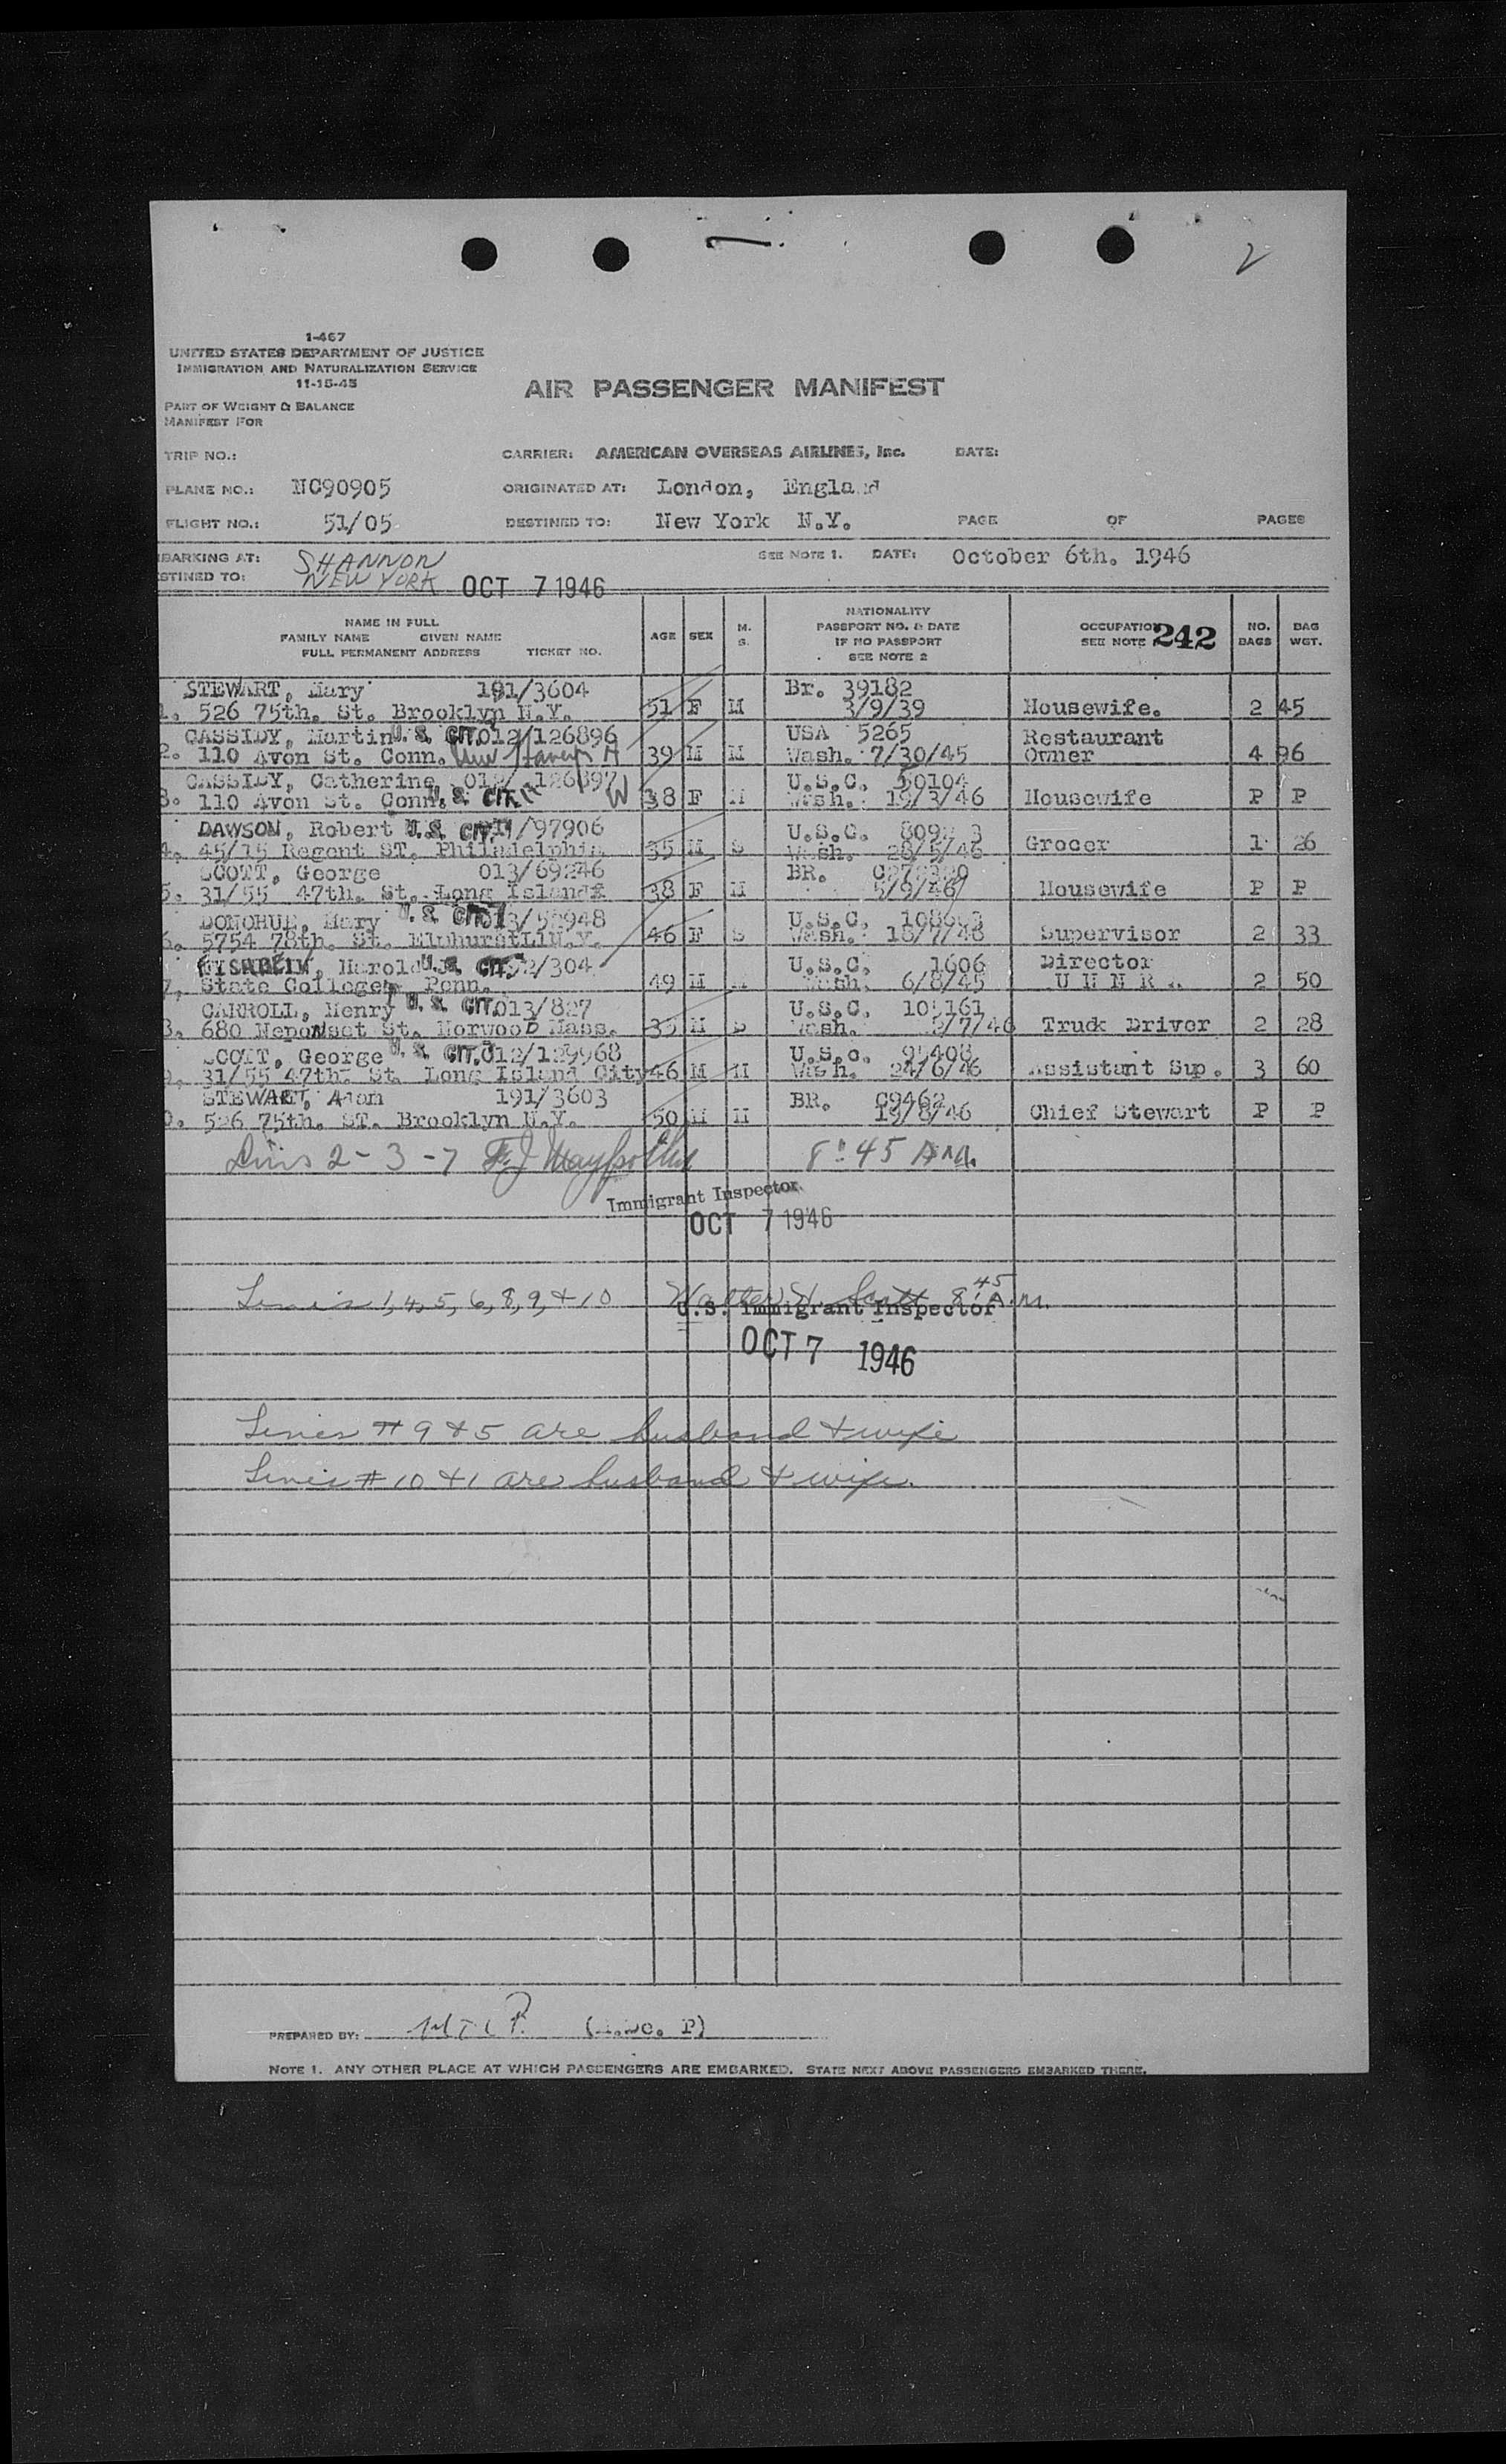 1-467
UNITED STATES DEPARTMENT OF JUSTICE
IMMIGRATION AND NATURALIZATION SERVICE
11-15-45
AIR PASSENGER MANIFEST
PART OF WEIGHT & BALANCE
MANIFEST FOR
TRIP NO.: CARRIER: AMERICAN OVERSEAS AIRLINES, Inc. DATE:
PLANE NO.: NC90905 ORIGINATED AT: London, England
FLIGHT NO.: 51/05 DESTINED TO: New York N.Y. PAGE OF PAGES
BARKING AT: SHANNON SEE NOTE 1. DATE: October 6th. 1946
STINED TO: NEW YORK OCT 7 1946
NAME IN FULL
FAMILY NAME GIVEN NAME
FULL PERMANENT ADDRESS TICKET NO.
AGE SEX M. S.
NATIONALITY
PASSPORT NO. & DATE
IF NO PASSPORT
SEE NOTE 2
OCCUPATION
SEE NOTE 242
NO. BAGS
BAG WGT.
STEWART, Mary 191/3604 Br. 39182
1. 526 75th. St. Brooklyn N.Y. 51 F M 3/9/39 Housewife. 2 45
CASSIDY, Martin U. S. CIT. 012/126896 USA 5265 Restaurant
2. 110 Avon St. Conn. New Haven H 39 M M Wash. 7/30/45 Owner 4 96
CASSIDY, Catherine 012/126897 U.S.C. 50104
3. 110 Avon St. Conn. U. S. CIT. W 38 F M Wash. 19/3/46 Housewife P P
DAWSON, Robert U. S. CIT. /97906 U.S.C.
4. 45/15 Regent ST. Philadelphia 35 M S Wash. 28/5/46 Grocer 1 26
SCOTT, George 013/69246 BR.
5. 31/55 47th. St. Long Island 38 F M 5/9/46 Housewife P P
DONOHUE, Mary U. S. CIT. U.S.C.
6. 5754 78th. St. 46 F S Wash. Supervisor 2 33
Harold J. U. S. CIT. 2/304 U.S.C. 1606 Director
7. State College Penn. 49 M Wash. 6/8/45 2 50
CARROLL, Henry U. S. CIT. 013/827 U.S.C. 105161
8. 680 Neponset St. Norwood Mass. 35 M S Wash. /7/46 Truck Driver 2 28
SCOTT, George U. S. CIT. 012/129968 U.S.C. 95408
9. 31/55 47th. St. Long Island City 46 M M Wash. 24/6/46 Assistant Sup. 3 60
STEWART, Adam 191/3603 BR. C9462
0. 526 75th. ST. Brooklyn N.Y. 50 M M 19/8/46 Chief Stewart P P
2 - 3 - 7 8:45 Am.
Immigrant Inspector
OCT 7 1946
Lines 1, 4, 5, 6, 8, 9, & 10 Walter H. Scott 8:45 A.m.
U.S. Immigrant Inspector
OCT 7 1946
Lines # 9 & 5 are husband & wife
Lines # 10 & 1 are husband & wife.
PREPARED BY:
NOTE 1. ANY OTHER PLACE AT WHICH PASSENGERS ARE EMBARKED. STATE NEXT ABOVE PASSENGERS EMBARKED THERE.